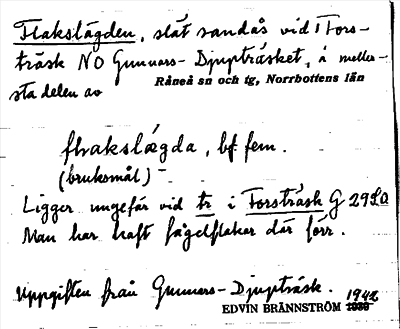 Flakslägden, slät sandås vid Fors-
träsk NO Gunnars-Djupträsket, å meller-
sta delen av
Råneå sn och tg, Norrbottens län
flakslægda, bf fem.
(bruksmål)
Ligger ungefär vid tr i Forsträsk G 29
Man har haft fågelflakar där förr.
Uppgiften från Gunnars-Djupträsk.
EDVIN BRÄNNSTRÖM 1942